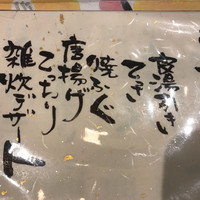 引き
てっさ
焼ふぐ
唐揚げ
てっちり
雑炊デザート